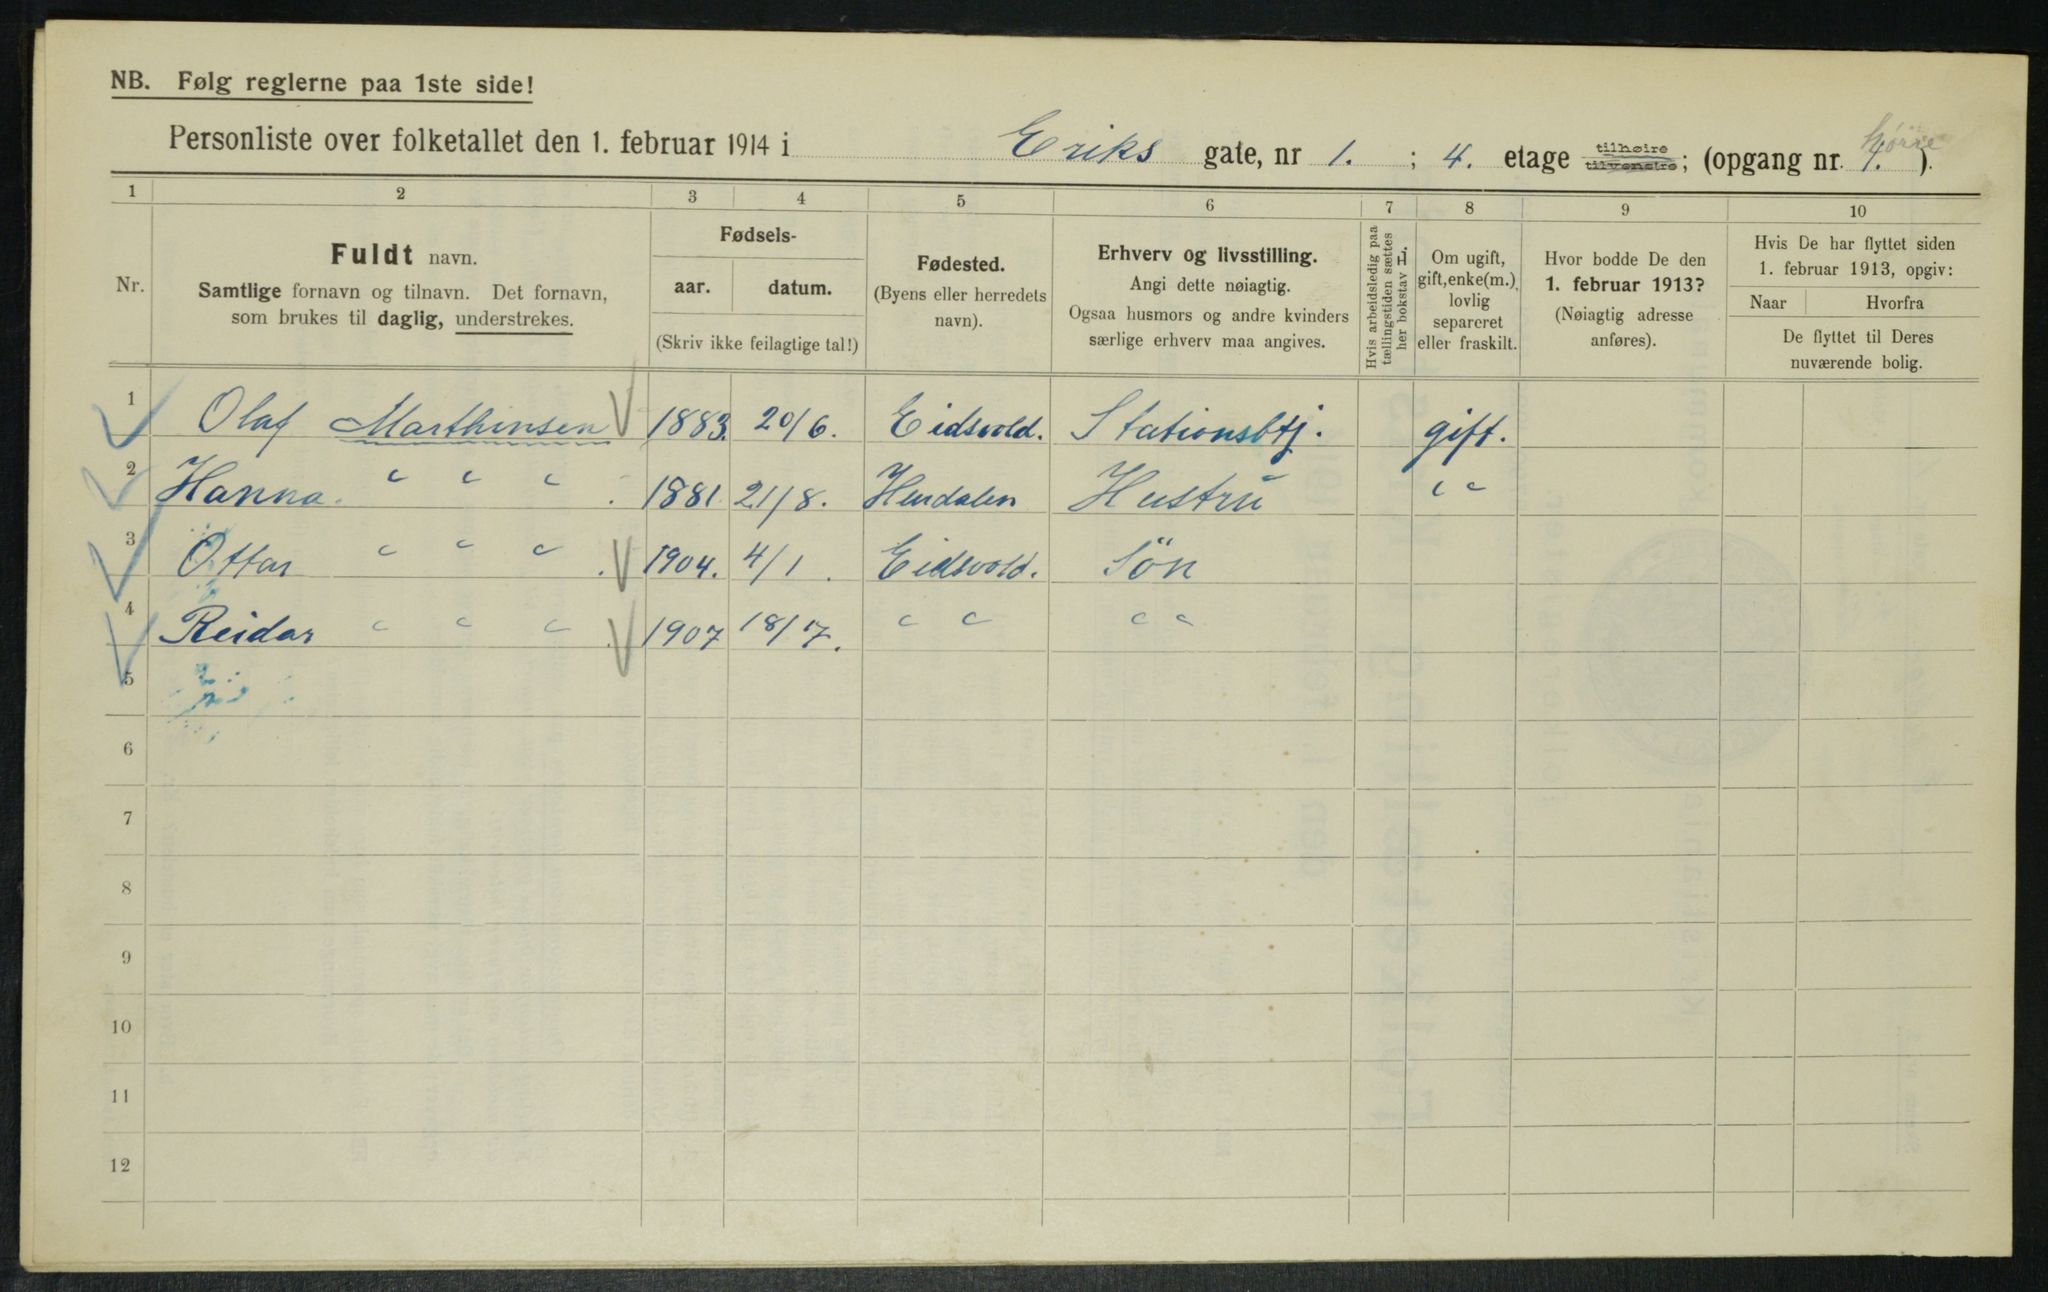 NB. Følg reglerne paa 1ste side!
Personliste over folketallet den 1. februar 1914 i Eriks gate, nr 1. ; 4. etage tilhøire tilvenstre; (opgang nr. 1. ).
høire
1 2 3 4 5 6 7 8 9 10
Nr.
Fuldt navn.
Samtlige fornavn og tilnavn. Det fornavn,
som brukes til daglig, understrekes.
Fødsels-
aar. datum.
(Skriv ikke feilagtige tal!)
Fødested.
(Byens eller herredets
navn).
Erhverv og livsstilling.
Angi dette nøiagtig.
Ogsaa husmors og andre kvinders
særlige erhverv maa angives.
Hvis arbeidsledig paa
tællingstiden sættes
her bokstav L.
Om ugift,
gift, enke(m.),
lovlig
separeret
eller fraskilt.
Hvor bodde De den
1. februar 1913?
(Nøiagtig adresse
anføres).
Hvis De har flyttet siden
1. februar 1913, opgiv:
Naar Hvorfra
De flyttet til Deres
nuværende bolig.
1 Olaf Marthinsen 1883. 20/6. Eidsvold. Stationsbtj. gift.
2 Hanna. " " " 1881. 21/8. Hurdalen Hustru "
3 Ottar " " " 1904. 4/1. Eidsvold. Sön
4 Reidar " " " 1907 18/7. " " " "
5
6
7
8
9
10
11
12